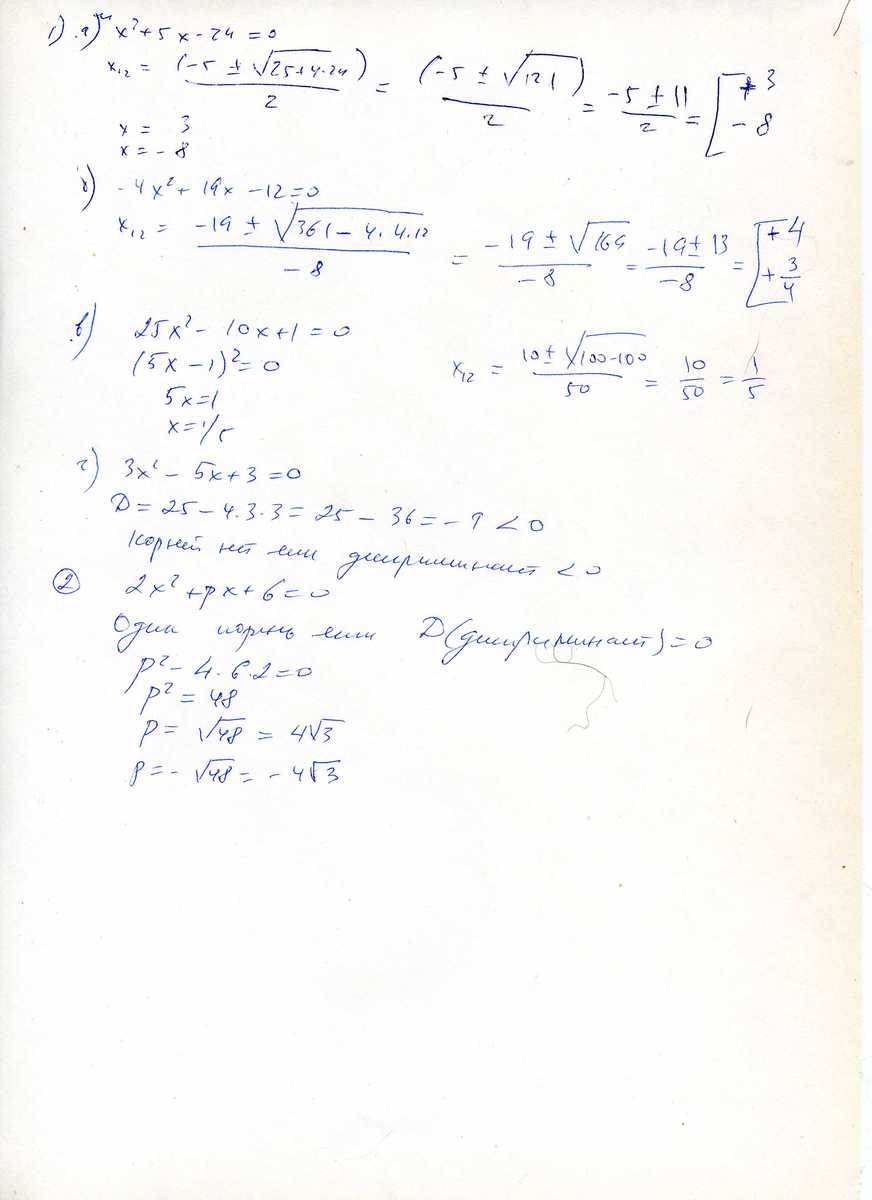 1) а) x² + 5x - 24 = 0
x₁₂ = (-5 ± √25+4·24)/2 = (-5 ± √121)/2 = -5 ± 11/2 = [+3 -8
x = 3
x = -8
б) -4x² + 19x - 12 = 0
x₁₂ = -19 ± √361 - 4·4·12/-8 = -19 ± √169/-8 = -19 ± 13/-8 = [+4 +3/4
в) 25x² - 10x + 1 = 0
(5x - 1)² = 0
5x = 1
x = 1/5
x₁₂ = 10 ± √100-100/50 = 10/50 = 1/5
г) 3x² - 5x + 3 = 0
D = 25 - 4·3·3 = 25 - 36 = -9 < 0
Корней нет если дискриминант < 0
2 2x² + px + 6 = 0
Один корень если D(дискриминант) = 0
p² - 4·6·2 = 0
p² = 48
p = √48 = 4√3
p = -√48 = -4√3